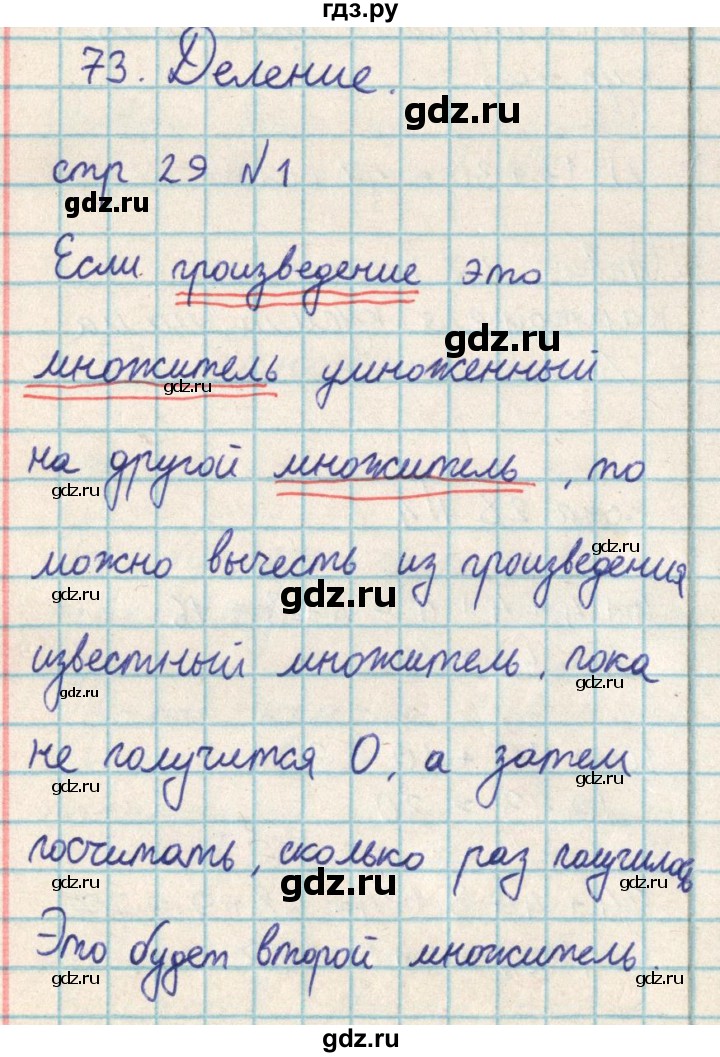 гдз.ру
73. Деление.
gdz.ru
стр 29 №1
gdz.ru
Если произведение это
gdz.ru
множитель умноженный
gdz.ru
на другой множитель, то
gdz.ru
gdz.ru
можно вычесть из произведения
gdz.ru
gdz.ru
известный множитель, пока
gdz.ru
gdz.ru
не получится 0, а затем
gdz.ru
gdz.ru
посчитать, сколько раз получилось
gdz.ru
gdz.ru
gdz.ru
Это будет второй множитель.
gdz.ru
gdz.ru
gdz.ru